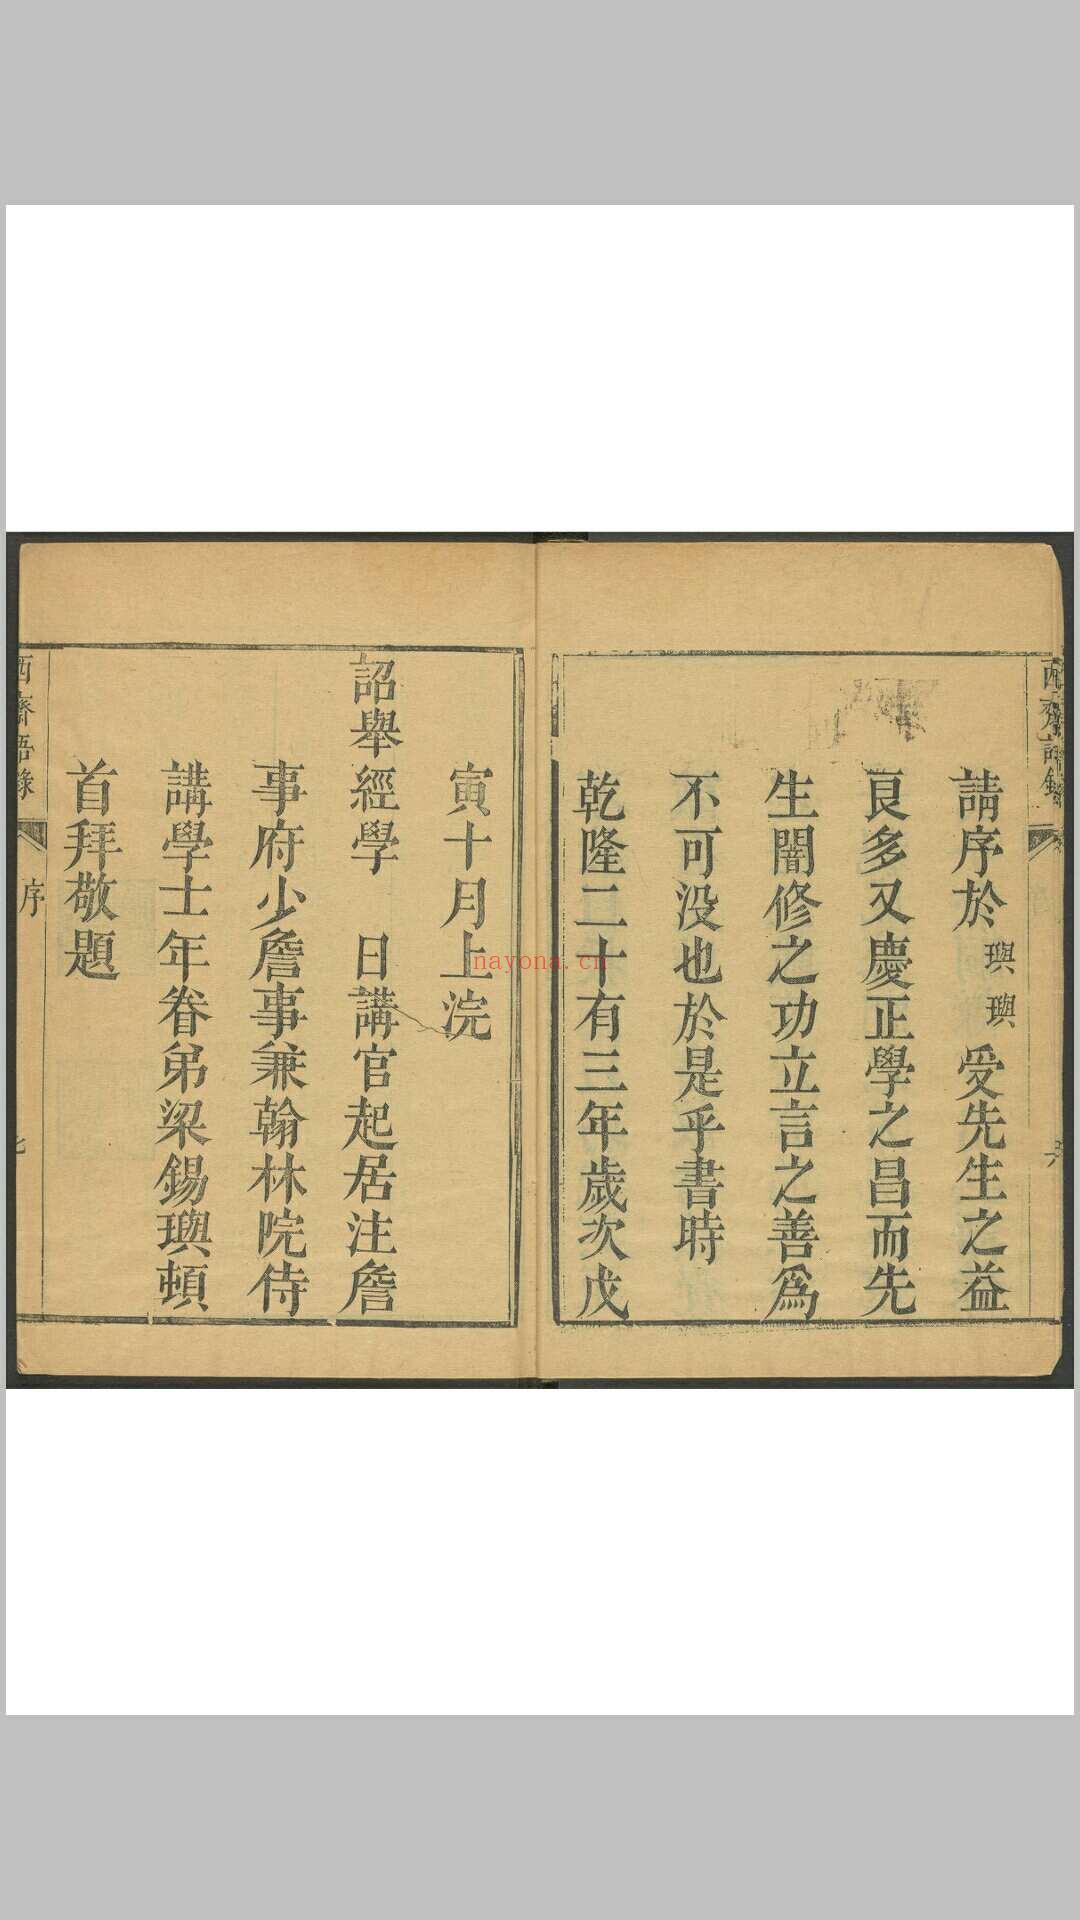 請序於璵璵受先生之益
良多又慶正學之昌而先
生闇修之功立言之善爲
不可没也於是乎書時
乾隆二十有三年歲次戊
寅十月上浣
詔舉經學 日講官起居注詹
事府少詹事兼翰林院侍
講學士年眷弟梁錫璵頓
首拜敬題
西齋語錄
序
七
西齋語錄
六
nayona.cn